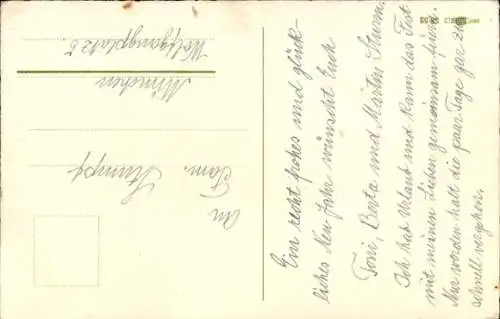 Ein recht frohes und glück-
liches Neu Jahr wünscht Euch
Toni, Berta und Martin Sturm.
Ich hab Urlaub und kann das Fest
mit meinen Lieben gemeinsam feiern.
Nur werden halt die paar Tage gar zu
schnell vergehen.
An
Fam. Stumpf
München
Wolfgangplatz 5